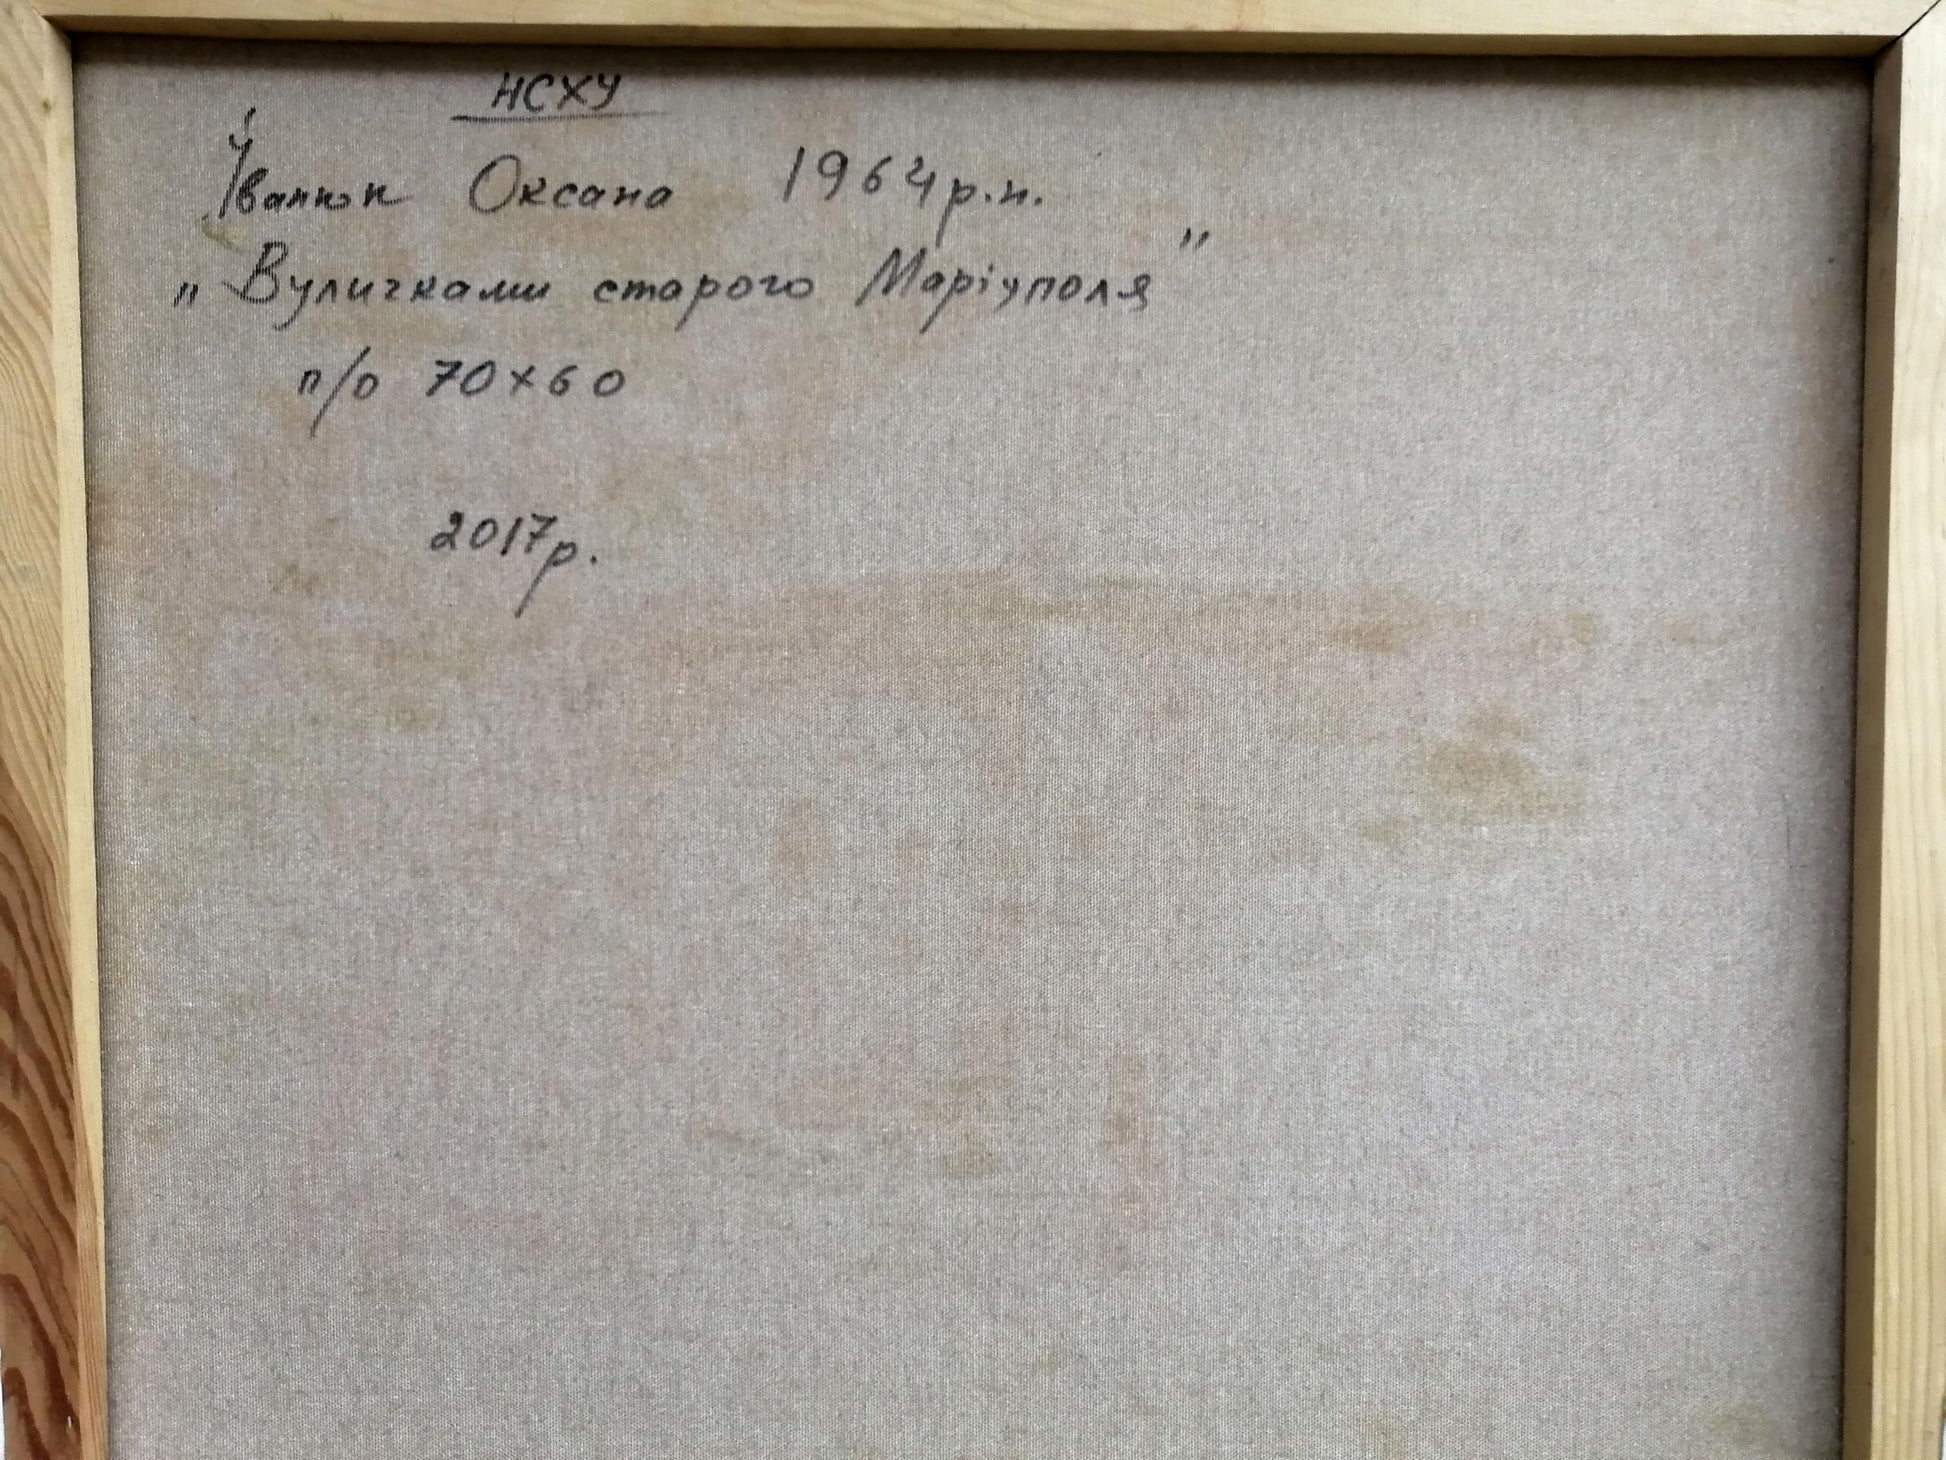 НСХУ
Іванюк Оксана 1964 р.н.
„Вуличками старого Маріуполя”
п/о 70х60
2017р.